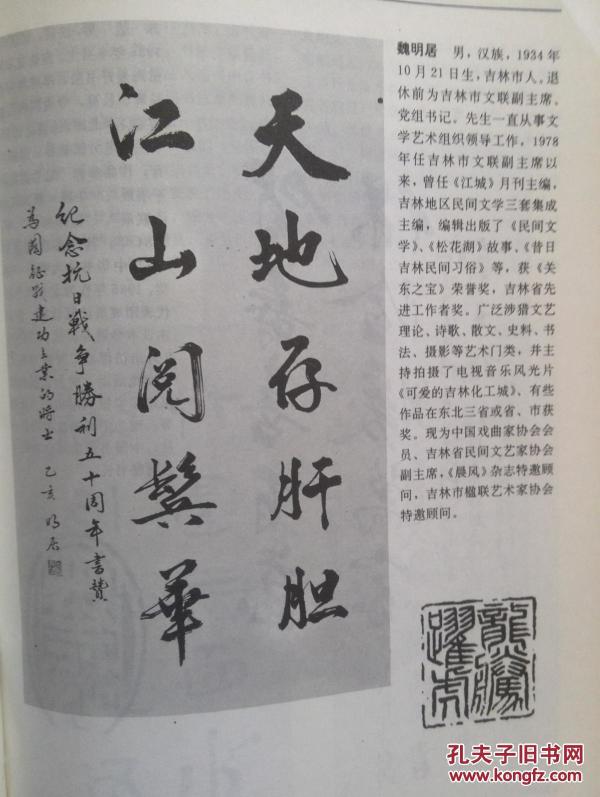 天地存肝胆
江山阅鬓華
纪念抗日戰争勝利五十周年書贊
為國征战建功立業的将士 乙亥 明居
魏明居 男，汉族，1934年
10月21日生，吉林市人。退
休前为吉林市文联副主席。
党组书记。先生一直从事文
学艺术组织领导工作，1978
年任吉林市文联副主席以
来，曾任《江城》月刊主编，
吉林地区民间文学三套集成
主编，编辑出版了《民间文
学》、《松花湖》故事、《昔日
吉林民间习俗》等，获《关
东之宝》荣誉奖，吉林省先
进工作者奖。广泛涉猎文艺
理论、诗歌、散文、史料、书
法、摄影等艺术门类，并主
持拍摄了电视音乐风光片
《可爱的吉林化工城》、有些
作品在东北三省或省、市获
奖。现为中国戏曲家协会会
员、吉林省民间文艺家协会
副主席，《晨风》杂志特邀顾
问，吉林市楹联艺术家协会
特邀顾问。
龍騰
躍虎
孔夫子旧书网
www.kongfz.com